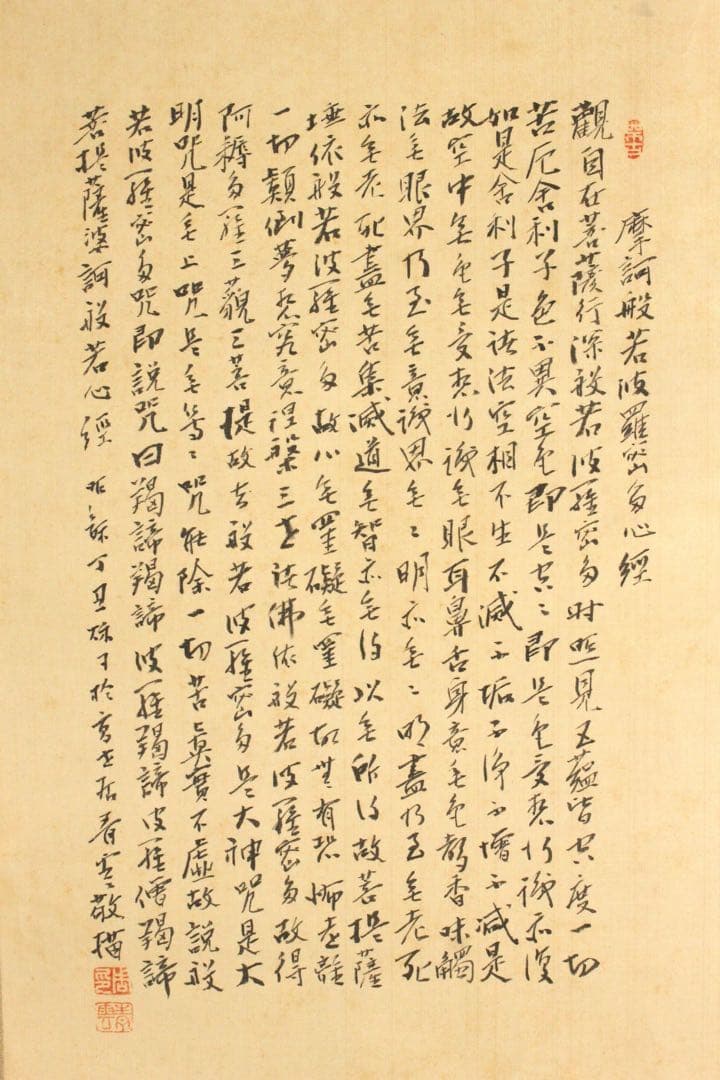 摩訶般若波羅密多心經
觀自在菩薩行深般若波羅密多時照見五蘊皆空度一切
苦厄舍利子色不異空色即是空〻即是色受想行識亦復
如是舍利子是諸法空相不生不滅不垢不淨不增不減是
故空中無色無受想行識無眼耳鼻舌身意無色聲香味觸
法無眼界乃至無意識界無〻明亦無〻明盡乃至無老死
亦無老死盡無苦集滅道無智亦無得以無所得故菩提薩
埵依般若波羅密多故心無罣礙無罣礙故無有恐怖遠離
一切顛倒夢想究竟涅槃三世諸佛依般若波羅密多故得
阿耨多羅三藐三菩提故知般若波羅密多是大神咒是大
明咒是無上咒是無等〻咒能除一切苦真實不虛故說般
若波羅密多咒即說咒曰羯諦羯諦波羅羯諦波羅僧羯諦
菩提薩婆訶般若心經 丁丑秋月於 居春雲敬描